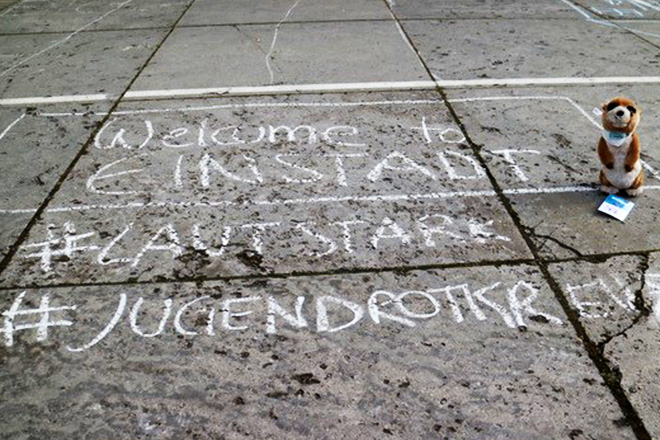 Welcome to
EINSTADT
#LAUTSTARK
#JUGENDROTKREUZ